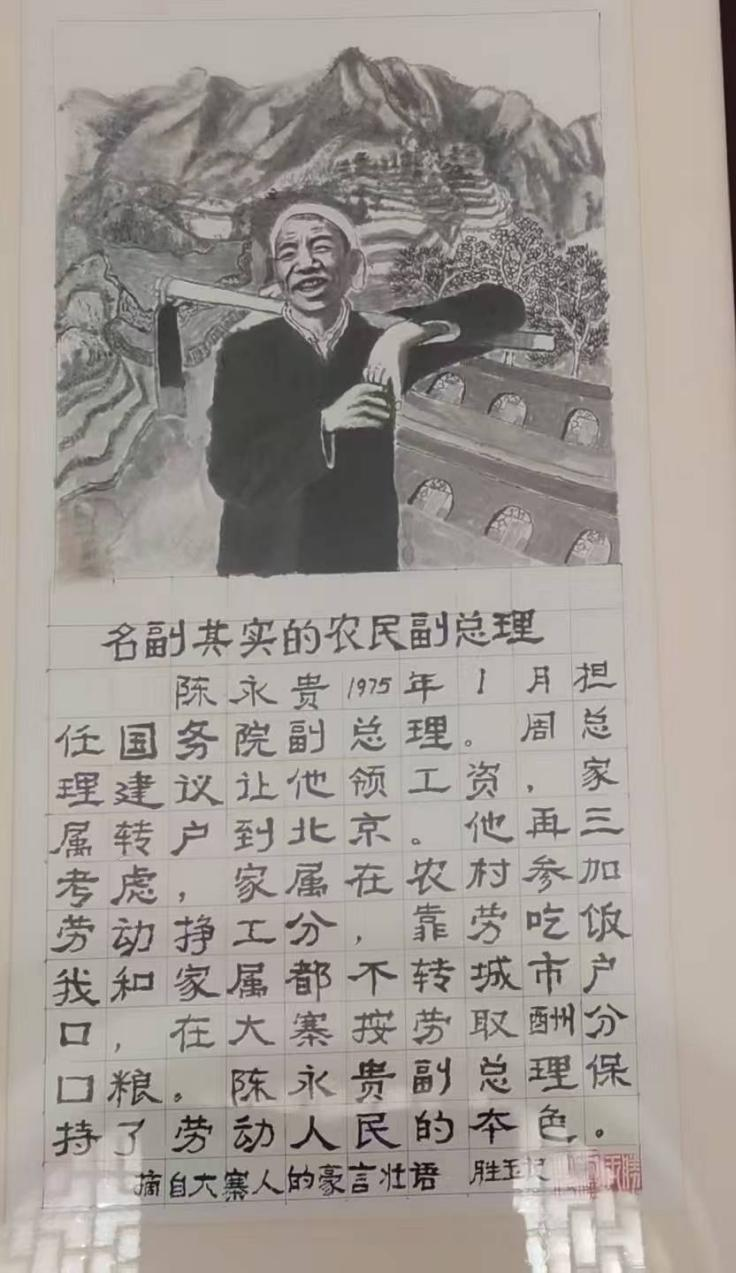 名副其实的农民副总理
陈永贵1975年1月担
任国务院副总理。周总
理建议让他领工资，家
属转户到北京。他再三
考虑，家属在农村参加
劳动挣工分，靠劳吃饭
我和家属都不转城市户
口，在大寨按劳取酬分
口粮。陈永贵副总理保
持了劳动人民的本色。
摘自大寨人的豪言壮语 胜玉